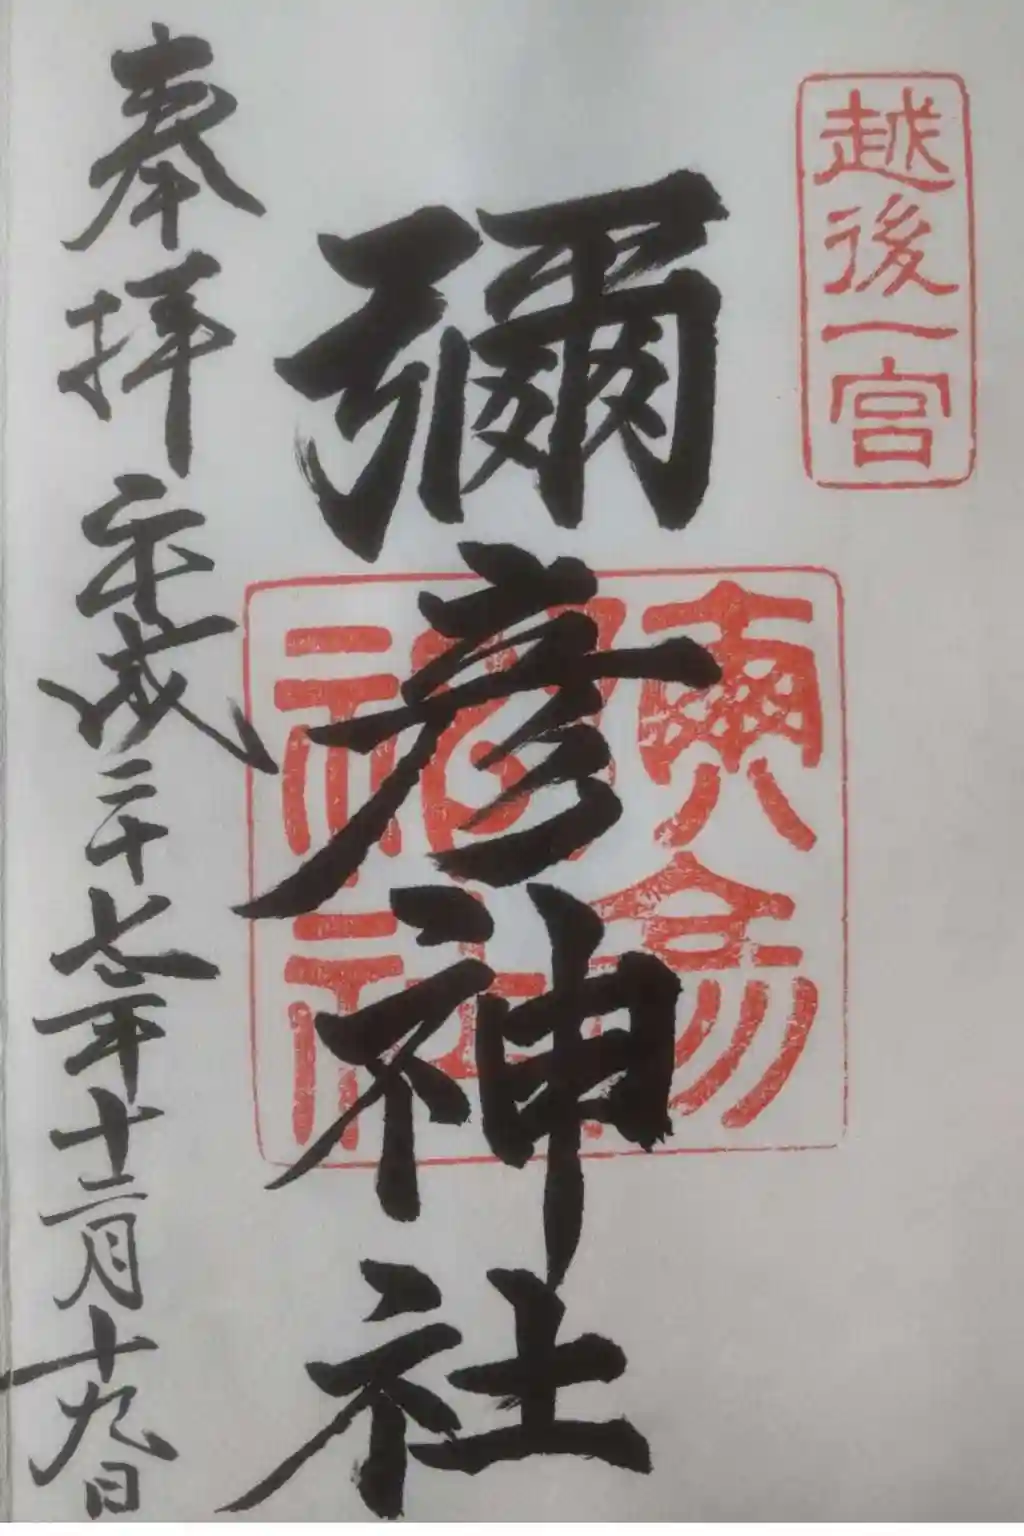 越後一宮
彌彦神社
彌彦神社
奉拝 平成二十七年十二月十九日